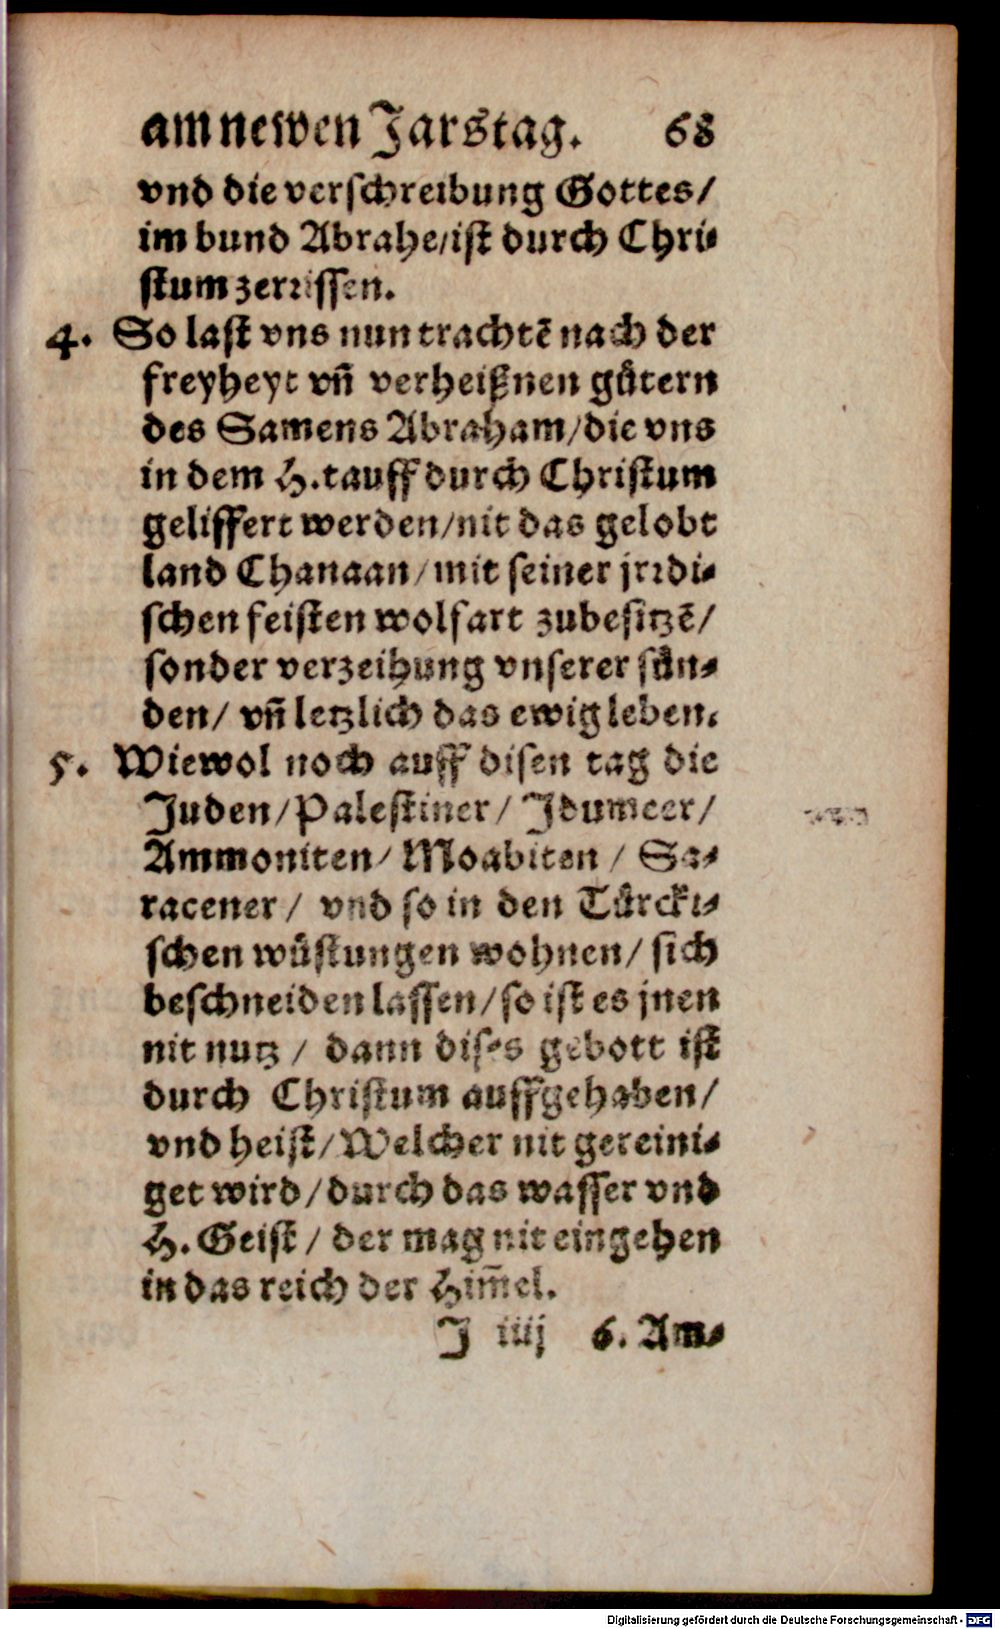 am newen Jarstag. 68
vnd die verschreibung Gottes/
im bund Abrahe/ist durch Chri⸗
stum zerrissen.
4. So last vns nun trachtẽ nach der
freyheyt vñ verheißnen gůtern
des Samens Abraham/die vns
in dem H. tauff durch Christum
geliffert werden/nit das gelobt
land Chanaan/mit seiner jrrdi⸗
schen feisten wolfart zubesitzẽ/
sonder verzeihung vnserer sůn⸗
den/ vñ letzlich das ewig leben.
5. Wiewol noch auff disen tag die
Juden/Palestiner/ Jdumeer/
Ammoniten/ Moabiten / Sa⸗
racener / vnd so in den Tůrcki⸗
schen wůstungen wohnen/ sich
beschneiden lassen/so ist es jnen
nit nutz / dann dises gebott ist
durch Christum auffgehaben/
vnd heist/Welcher nit gereini⸗
get wird/durch das wasser vnd
H. Geist / der mag nit eingehen
in das reich der Him̃el.
J iiij 6. Am⸗
Digitalisierung gefördert durch die Deutsche Forschungsgemeinschaft - DFG